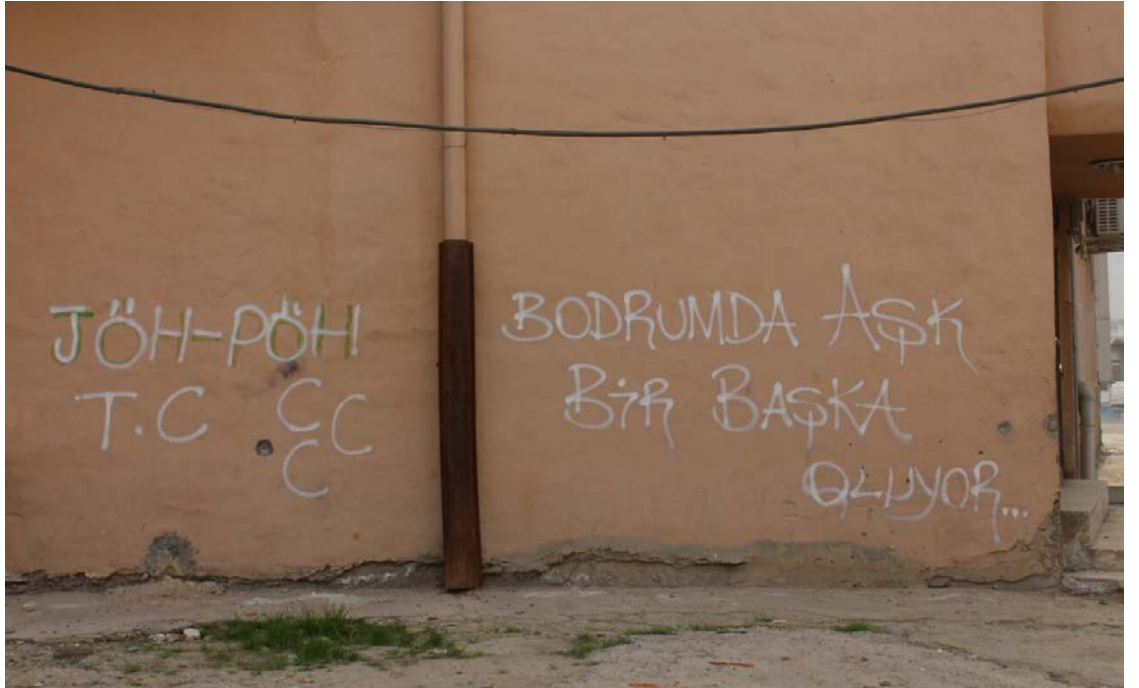 JÖH-PÖH
T.C C
C
C
BODRUMDA AŞK
BİR BAŞKA
OLUYOR...